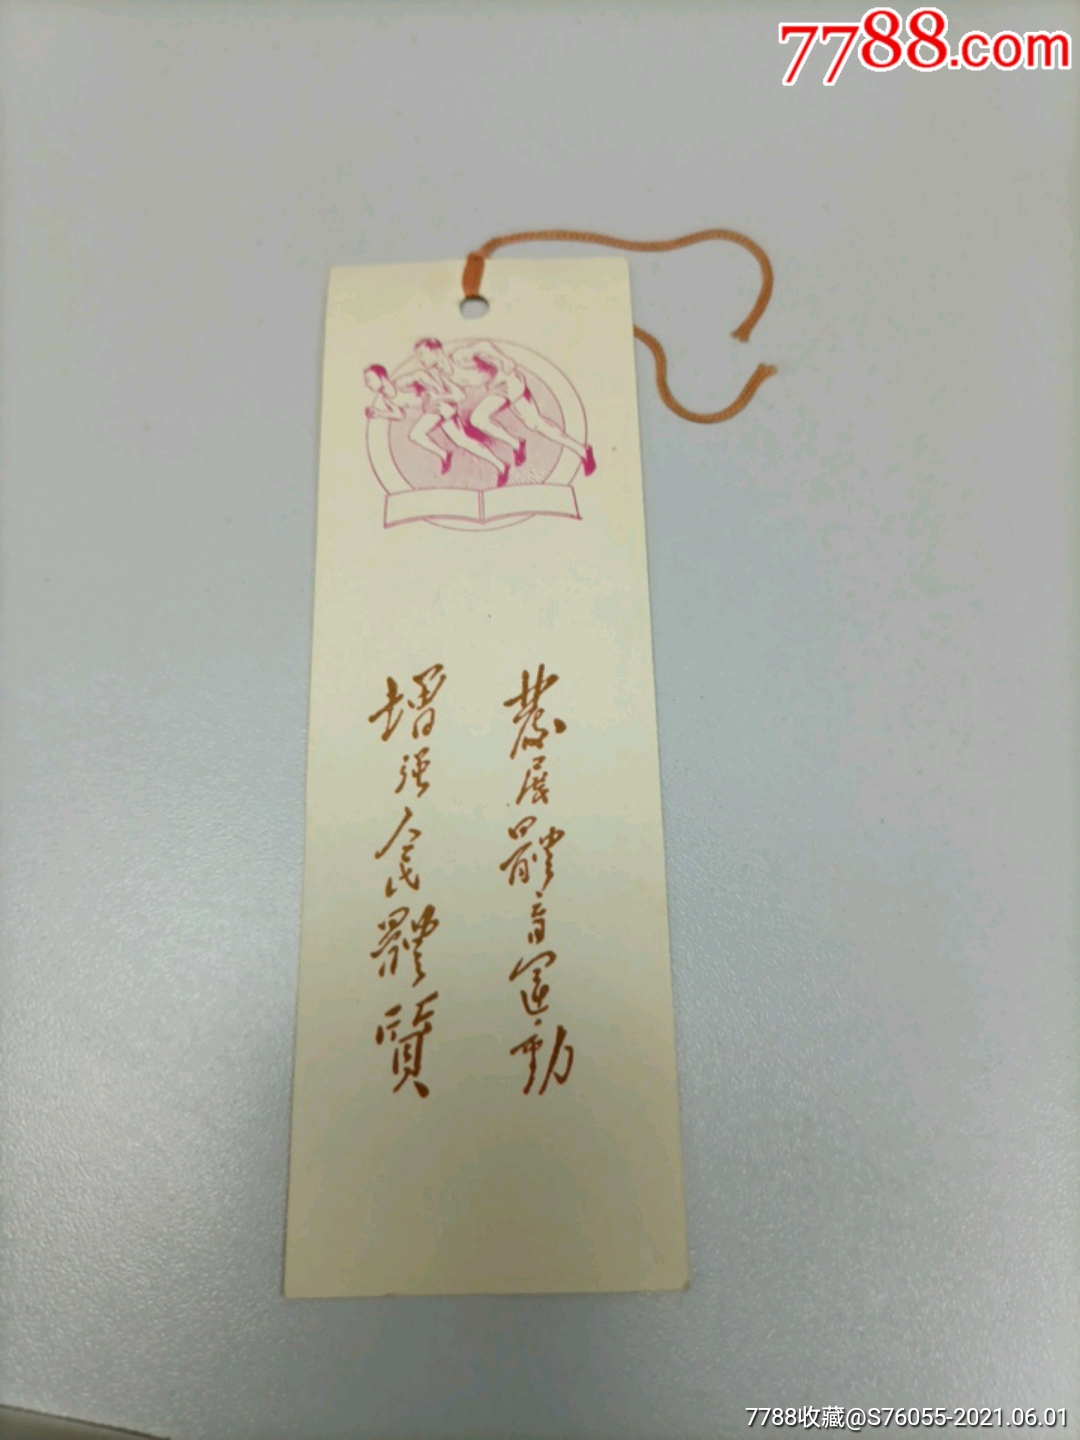 7788.com
發展體育運動
增强人民體質
7788收藏@S76055-2021.06.01